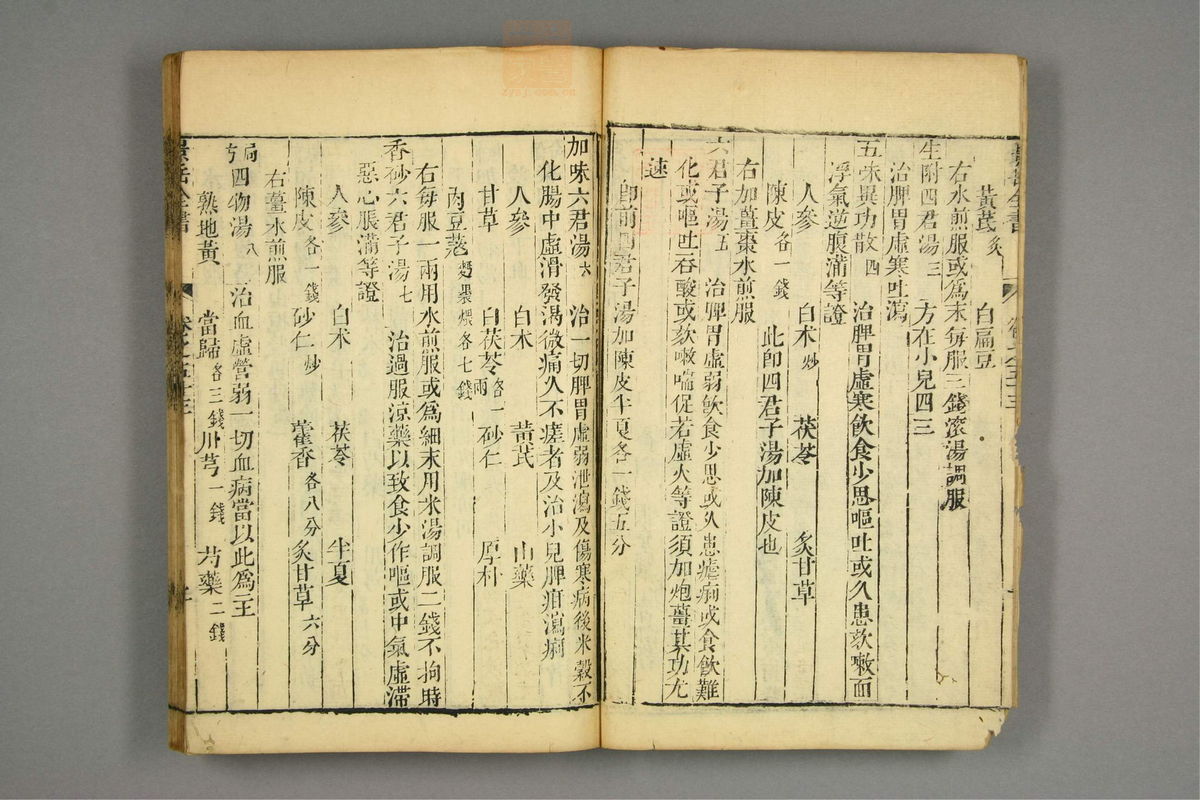 黃芪炙 白扁豆
右水煎服或爲末每服三錢滾湯調服
生附四君湯三 方在小兒四三
治脾胃虛寒吐瀉
五味異功散四 治脾胃虛寒飲食少思嘔吐或久患欬嗽面
浮氣逆腹滿等證
人參 白术炒 茯苓 炙甘草
陳皮各一錢 此卽四君子湯加陳皮也
右加薑棗水煎服
六君子湯五 治脾胃虛弱飲食少思或久患瘧痢或食飲難
化或嘔吐吞酸或欬嗽喘促若虛火等證須加炮薑其功尤
速
卽前四君子湯加陳皮半夏各一錢五分
加味六君湯六 治一切脾胃虛弱泄瀉及傷寒病後米穀不
化腸中虛滑發渴微痛久不瘥者及治小兒脾疳瀉痢
人參 白术 黃芪 山藥
甘草 白茯苓各一兩 砂仁 厚朴
肉豆蔻麪裹煨各七錢
右每服一兩用水煎服或爲細末用米湯調服二錢不拘時
香砂六君子湯七 治過服涼藥以致食少作嘔或中氣虛滯
惡心脹滿等證
人參 白术 茯苓 半夏
陳皮各一錢 砂仁炒 藿香各八分 炙甘草六分
右薑水煎服
局方四物湯八 治血虛營弱一切血病當以此爲主
熟地黃 當歸各三錢 川芎一錢 芍藥二錢
景岳全書 卷之五十三